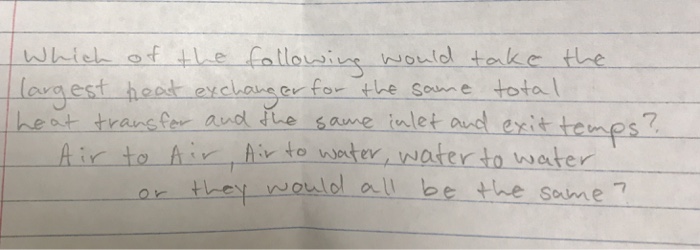 Which of the following would take the
largest heat exchanger for the same total
heat transfer and the same inlet and exit temps?
Air to Air, Air to water, water to water
or they would all be the same?